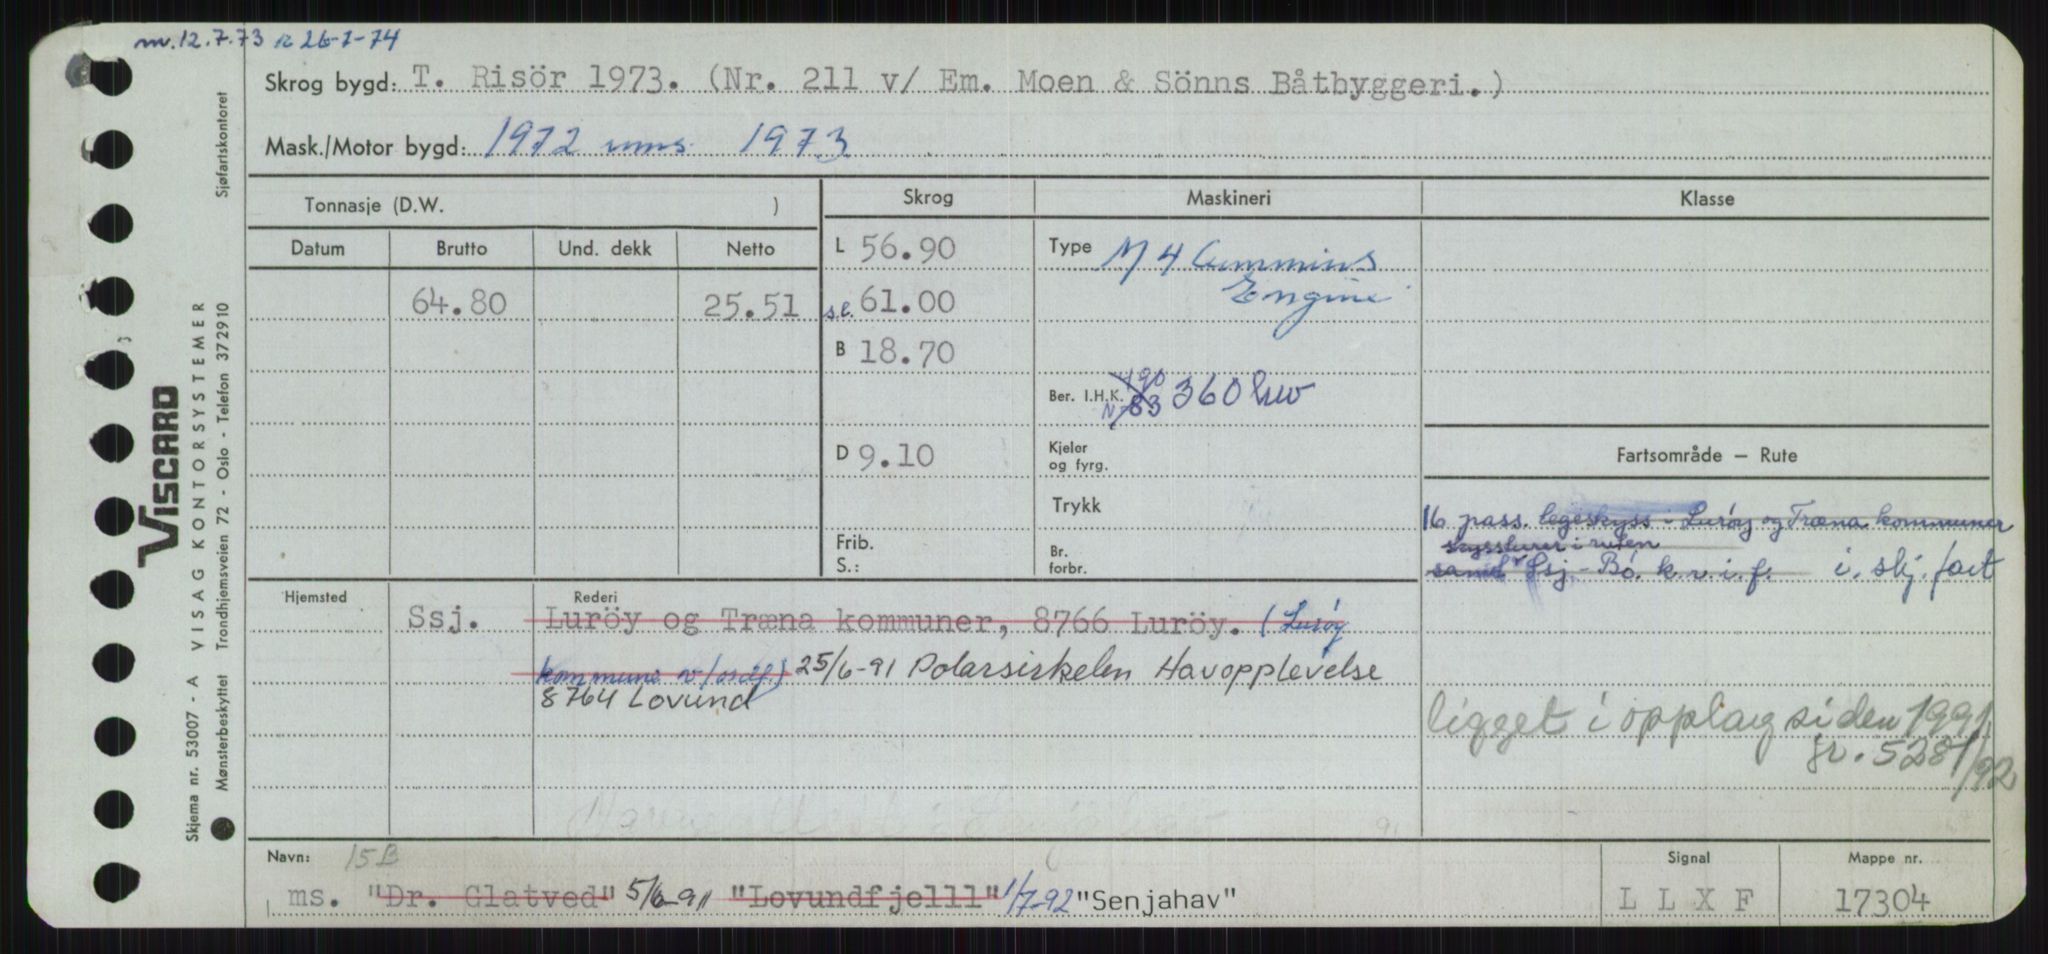 m. 12.7.73 R 26-7-74
Skrog bygd: T. Risör 1973. (Nr. 211 v/ Em. Moen & Sönns Båtbyggeri.)
Mask./Motor bygd: 1972 ums. 1973
Tonnasje (D.W. )
Skrog
Maskineri
Klasse
Datum
Brutto
Und. dekk
Netto
64.80
25.51
L 56.90
s.l. 61.00
B 18.70
D 9.10
Frib.
S.:
Type M 4 Cummins
Engine
Ber. I.H.K. 490 360 kw
N 83
Kjeler
og fyrg.
Trykk
Br.
forbr.
Fartsområde – Rute
16 pass. legeskyss i Luröy og Træna kommuner
skyssturer i ruten
samt Ssj. - Bö. k.v.i.f. i. skj. fart
ligget i opplag siden 1991
jr. 5281/92
Hjemsted
Rederi
Ssj.
Luröy og Træna kommuner, 8766 Luröy. (Luröy
kommune v/ordf) 25/6-91 Polarsirkelen Havopplevelse
8764 Lovund
Navn: 15B
ms. "Dr. Glatved" 5/6-91 "Lovundfjelll" 1/7-92 "Senjahav"
Signal
LLXF
Mappe nr.
17304
VISCARD
VISAG KONTORSYSTEMER
Skjema nr. 53007 - A
Mønsterbeskyttet
Trondhjemsveien 72 - Oslo - Telefon 372910
Sjøfartskontoret